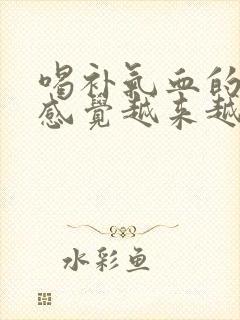 喝补气血的
感觉越来越
水彩鱼